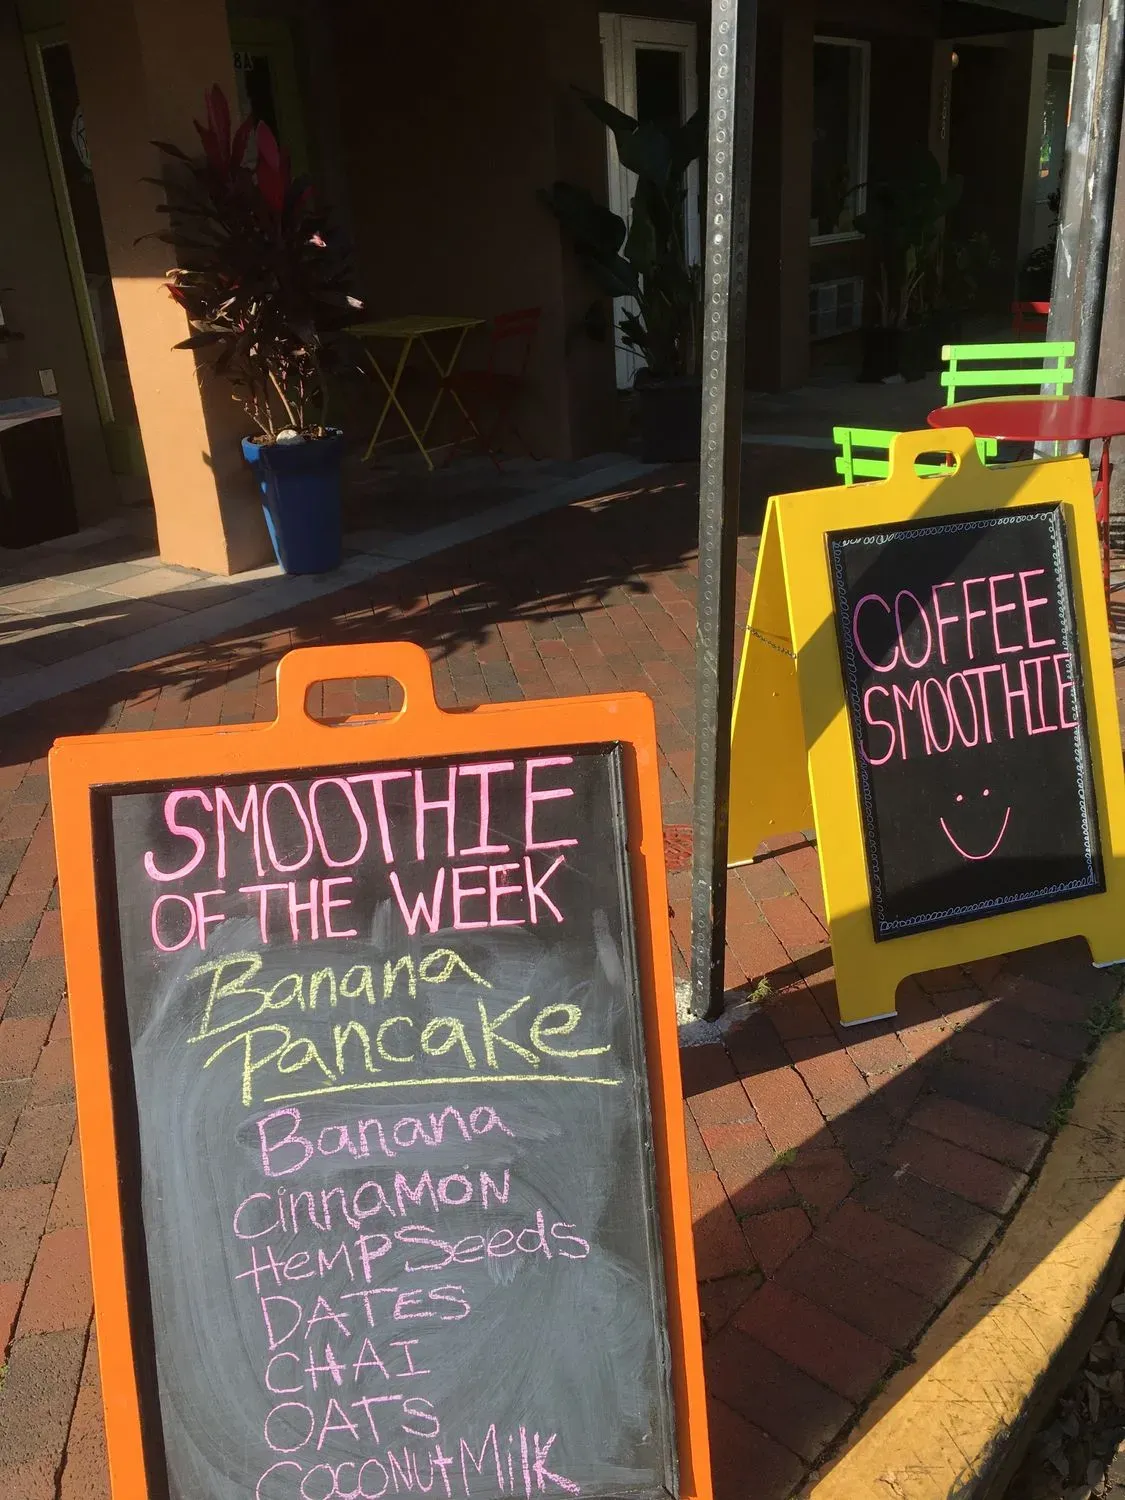 SMOOTHIE
OF THE WEEK
Banana
Pancake
Banana
CinnAMON
HEMP Seeds
DATES
CHAI
OATS
COCONUT Milk
COFFEE
SMOOTHIE